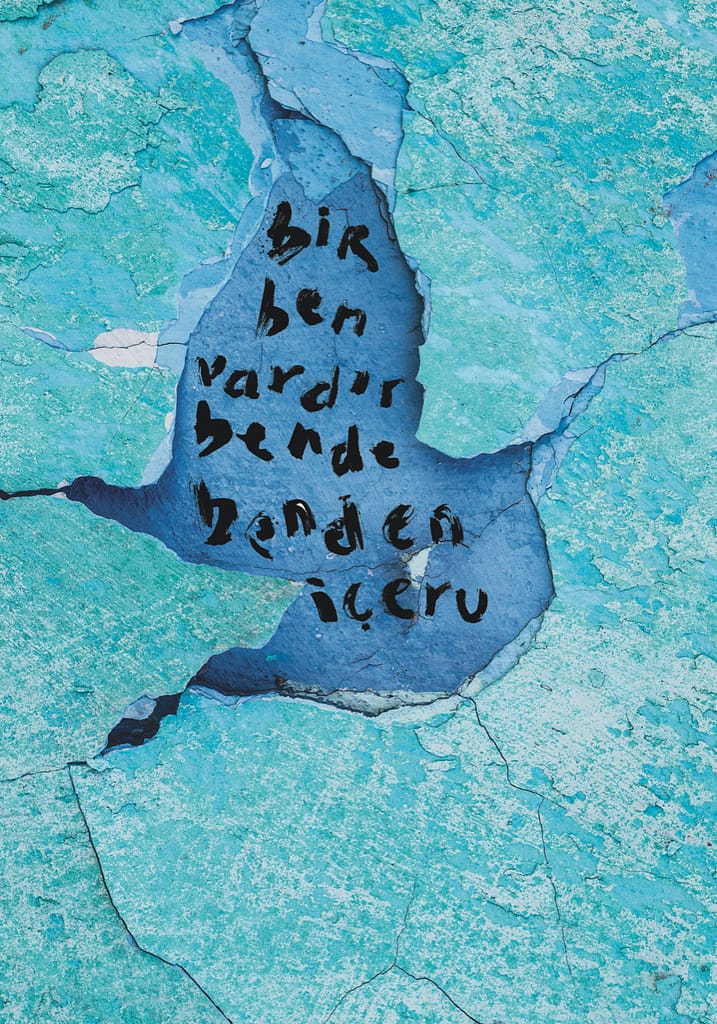 bir
ben
vardır
bende
benden
içeru